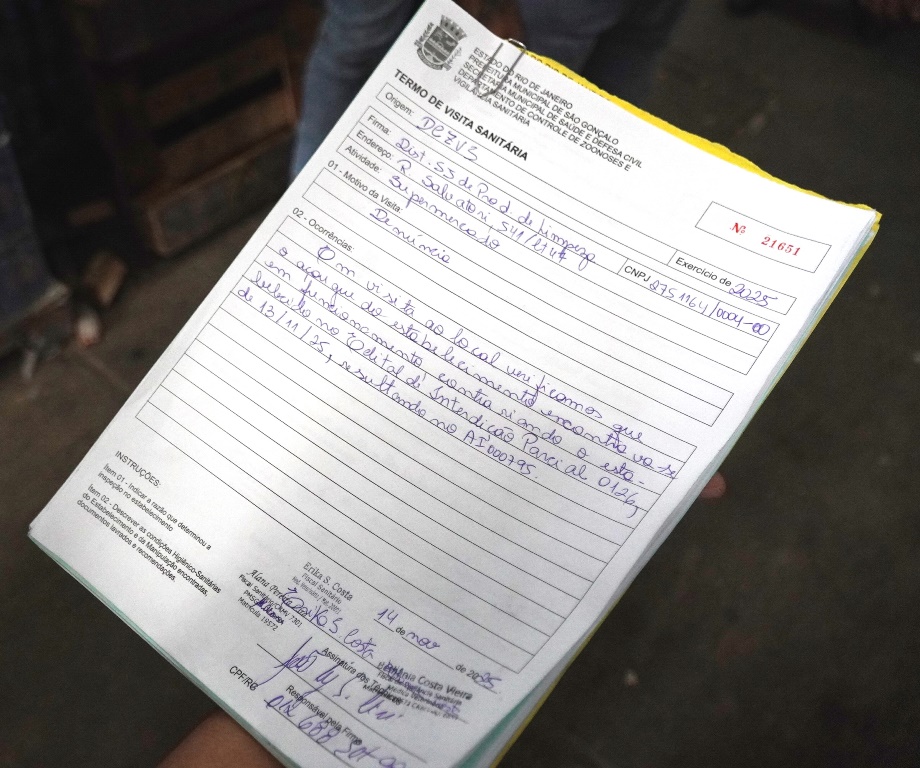 ESTADO DO RIO DE JANEIRO
PREFEITURA MUNICIPAL DE SÃO GONÇALO
SECRETARIA MUNICIPAL DE SAÚDE E DEFESA CIVIL
DEPARTAMENTO DE CONTROLE DE ZOONOSES E
VIGILÂNCIA SANITÁRIA
TERMO DE VISITA SANITÁRIA
Nº 21651
Origem: DCZVS
Exercício de 2025
Firma: Dist. SS de Prod. de Limpeza
CNPJ 0751164/0001-00
Endereço: R. Salvatori, 541/
Atividade: Supermercado
01 - Motivo da Visita: Denúncia
02 - Ocorrências:
Em visita ao local verificamos que
o açougue do estabelecimento encontrava-se
em funcionamento, contrariando o esta-
belecido no Edital de Interdição Parcial 0126,
de 13/11/25, resultando no AI000795.
INSTRUÇÕES:
Item 01 - Indicar a razão que determinou a
inspeção no estabelecimento
Item 02 - Descrever as condições Higiênico-Sanitárias
do Estabelecimento e da Manipulação encontradas,
documentos lavrados e recomendações.
14 de nov de 2025
Erika S. Costa
Fiscal Sanitário
Erika S. Costa
Fiscal Sanitário
Matrícula 19572
Costa Vieira
Assinatura dos Técnicos
Responsável pela Firma
CPF/RG